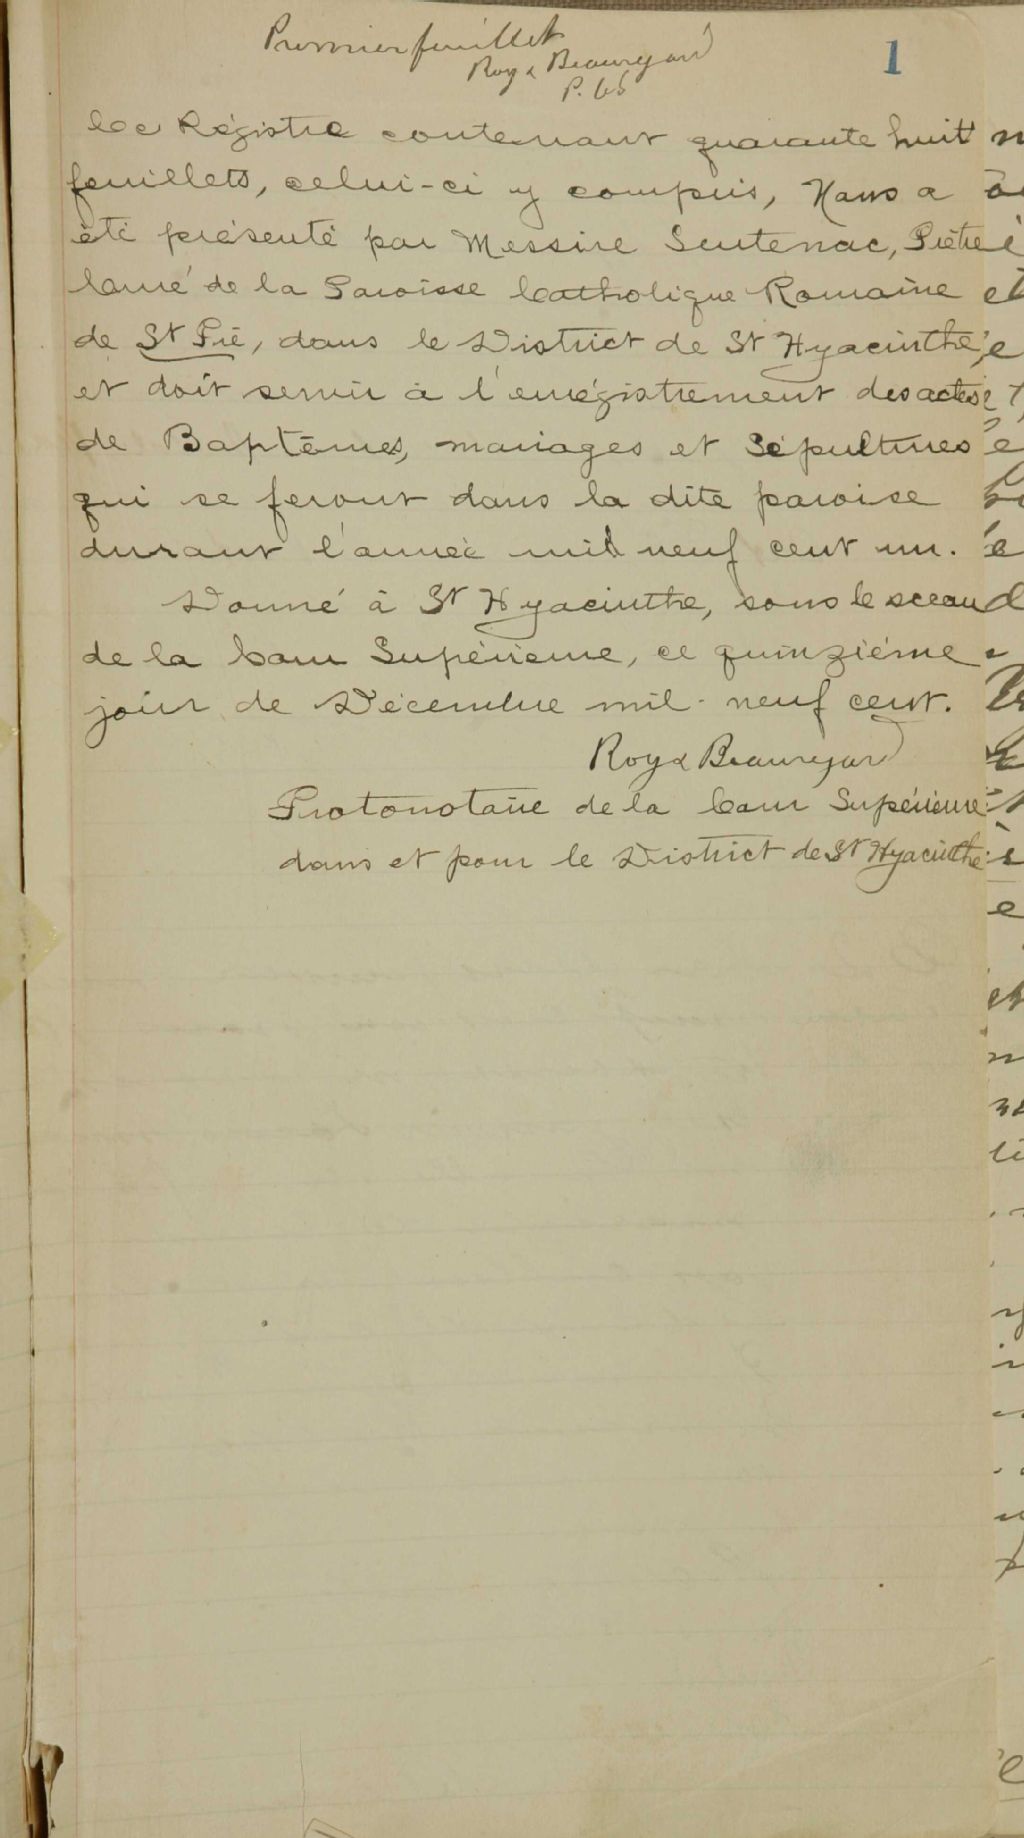 Premier feuillet
Roy & Beauregard
P. C. S.
1
Ce Régistre contenant quarante huit
feuillets, celui-ci y compris, Nous a
été présenté par Messire Sentenac, Prêtre
Curé de la Paroisse Catholique Romaine
de St Pie, dans le District de St Hyacinthe,
et doit servir à l'enrégistrement des actes
de Baptêmes, mariages et Sépultures
qui se feront dans la dite paroise
durant l'année mil neuf cent un.
Donné à St Hyacinthe, sous le sceau
de la Cour Supérieure, ce quinziéme
jour de Décembre mil neuf cent.
Roy & Beauregard
Protonotaire de la Cour Supérieure
dans et pour le District de St Hyacinthe